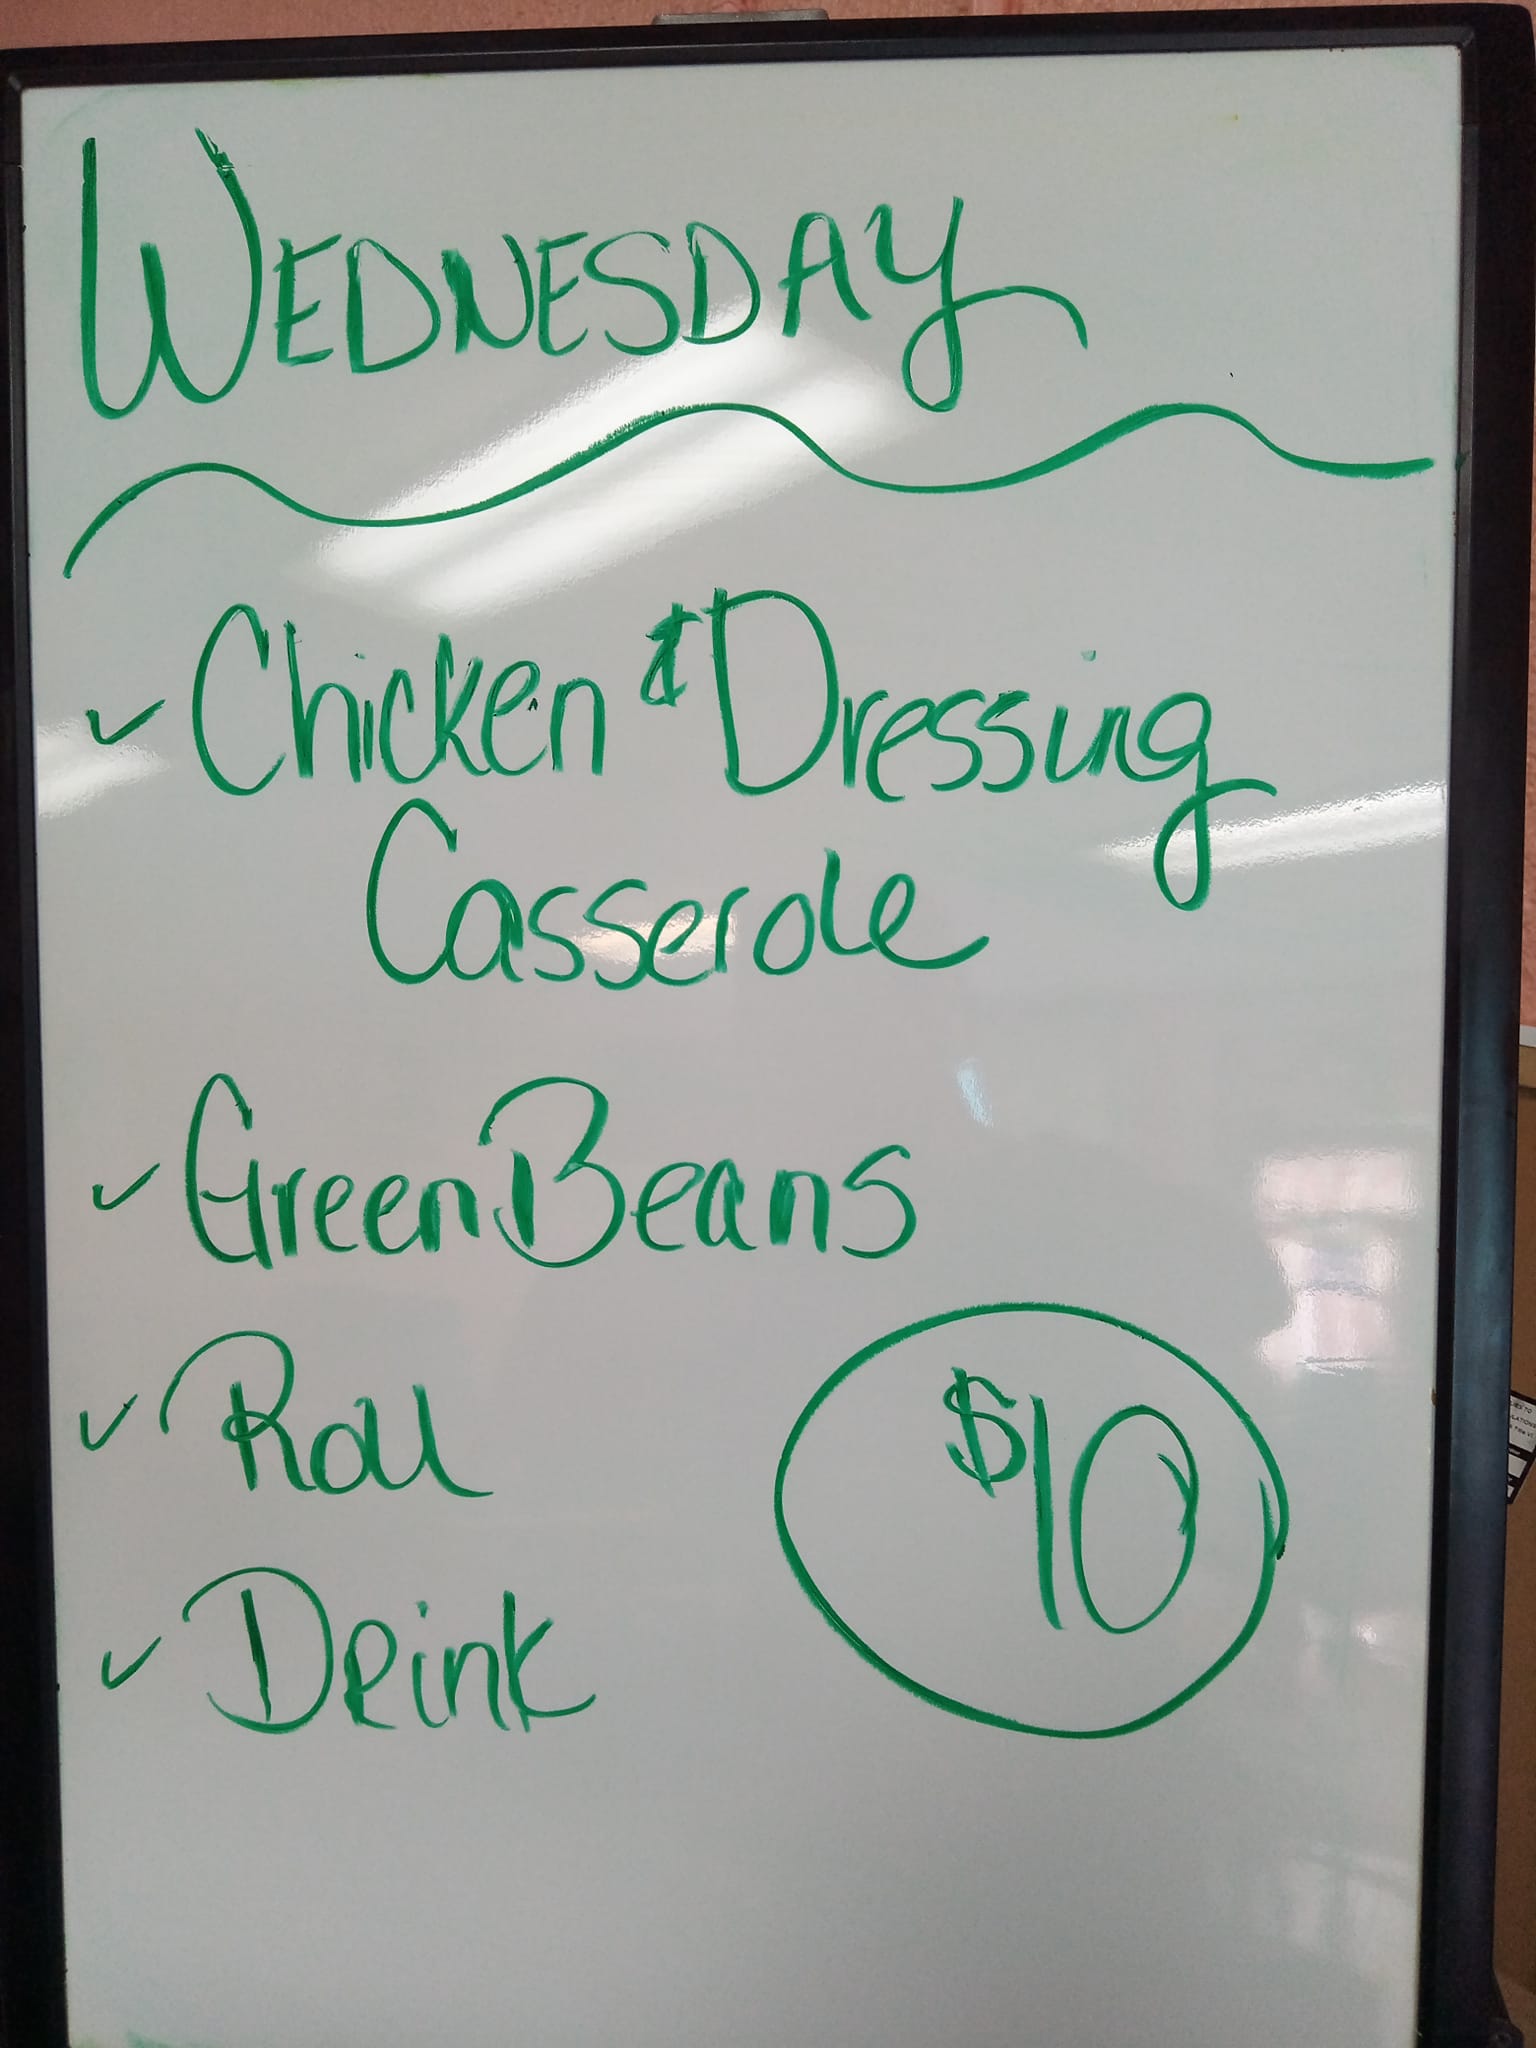 WEDNESDAY
✓ Chicken & Dressing
Casserole
✓ Green Beans
✓ Roll
$10
✓ Drink